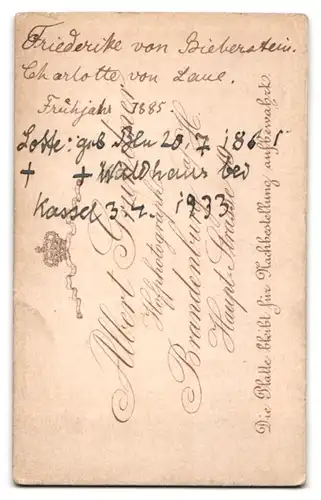 Friederike von Bieberstein.
Charlotte von Laue.
Frühjahr 1885
Lotte: geb Bln 20.7 1865
+ + Waldhaus bei
Kassel 3.4. 1933
Albert
Hofphotograph
Brandenburg a/H.
Haupt-Strasse
Die Platte bleibt für Nachbestellung aufbewahrt.